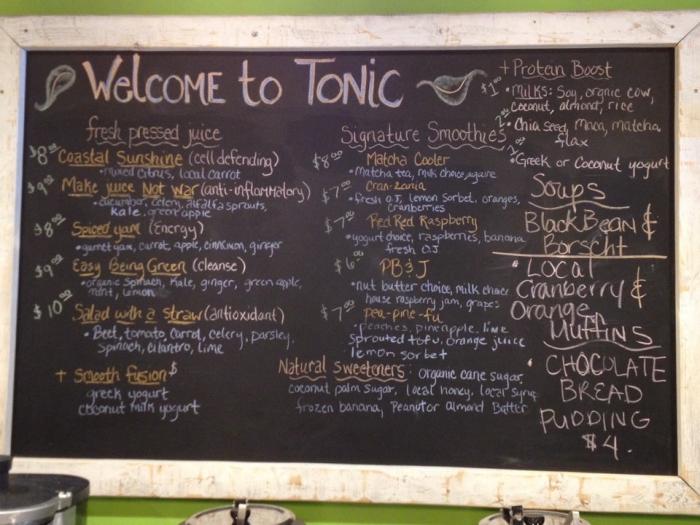 Welcome to Tonic
fresh pressed juice
$8.00 Coastal Sunshine (cell defending)
•mixed citrus, local carrot
$9.00 Make juice Not War (anti-inflammatory)
•cucumber, celery, alfalfa sprouts,
kale, green apple
$8.00 Spiced yam (Energy)
•garnet yam, carrot, apple, cinnamon, ginger
$9.00 Easy Being Green (cleanse)
•organic spinach, kale, ginger, green apple,
mint, lemon
$10.00 Salad with a straw (antioxidant)
•Beet, tomato, carrot, celery, parsley,
spinach, cilantro, lime
+ Smooth fusion $
greek yogurt
coconut milk yogurt
Signature Smoothies
$8.00 Matcha Cooler
•Matcha tea, milk choice, agave
$7.00 Cran-zania
•fresh O.J, lemon sorbet, oranges,
cranberries
$7.00 Red Red Raspberry
•yogurt choice, raspberries, banana
fresh O.J
$6.00 PB&J
•nut butter choice, milk choice
house raspberry jam, grapes
$7.00 pea-pine-fu
•peaches, pineapple, lime
sprouted tofu, orange juice
lemon sorbet
Natural Sweeteners: organic cane sugar,
coconut palm sugar, local honey, local syrup
frozen banana, Peanut or almond Butter
+ Protein Boost
$1.00 •Milks: Soy, organic cow,
coconut, almond, rice
•Chia seed, Maca, matcha,
flax
•Greek or Coconut yogurt
Soups
Black Bean &
Borscht
• Local
Cranberry &
Orange
Muffins
• CHOCOLATE
BREAD
PUDDING
$4.